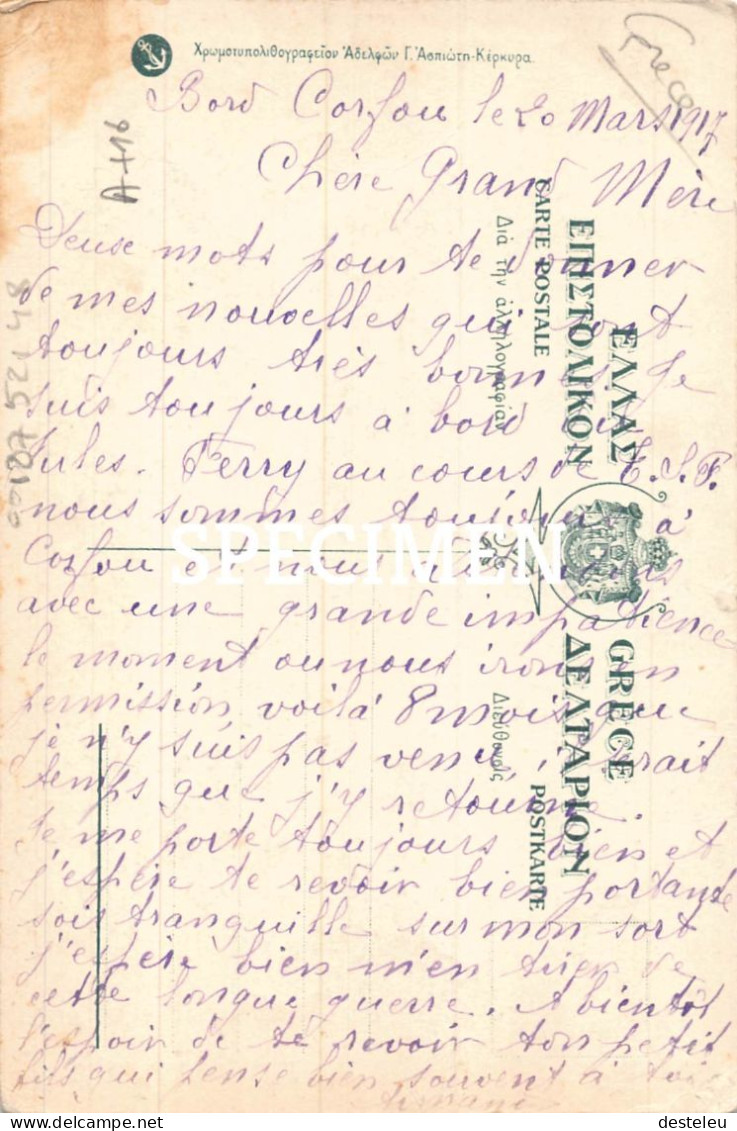 Χρωμοτυπολιθογραφεῖον Ἀδελφῶν Γ. Ἀσπιώτη-Κέρκυρα.
Grece
Bord Corfou le 20 Mars 1917
Chère Grand Mère
Deuse mots pour te donner
de mes nouvelles qui sont
toujours très bonnes je
suis toujours à bord du
Jules. Ferry au cours de T.S.F.
nous sommes toujours à
Corfou et nous attendons
avec une grande impatience
le moment ou nous irons en
permission, voilà 8 mois que
je n'y suis pas venu, serait
temps que j'y retourne.
Je me porte toujours bien et
j'espère te revoir bien portante
sois tranquille sur mon sort
j'espère bien m'en tirer de
cette longue guerre. A bientôt
l'espoir de te revoir ton petit
fils qui pense bien souvent à toi
ΕΛΛΑΣ GRECE
ΕΠΙΣΤΟΛΙΚΟΝ ΔΕΛΤΑΡΙΟΝ
CARTE POSTALE POSTKARTE
Διὰ τὴν ἀλληλογραφίαν
Διεύθυνσις
SPECIMEN
desteleu